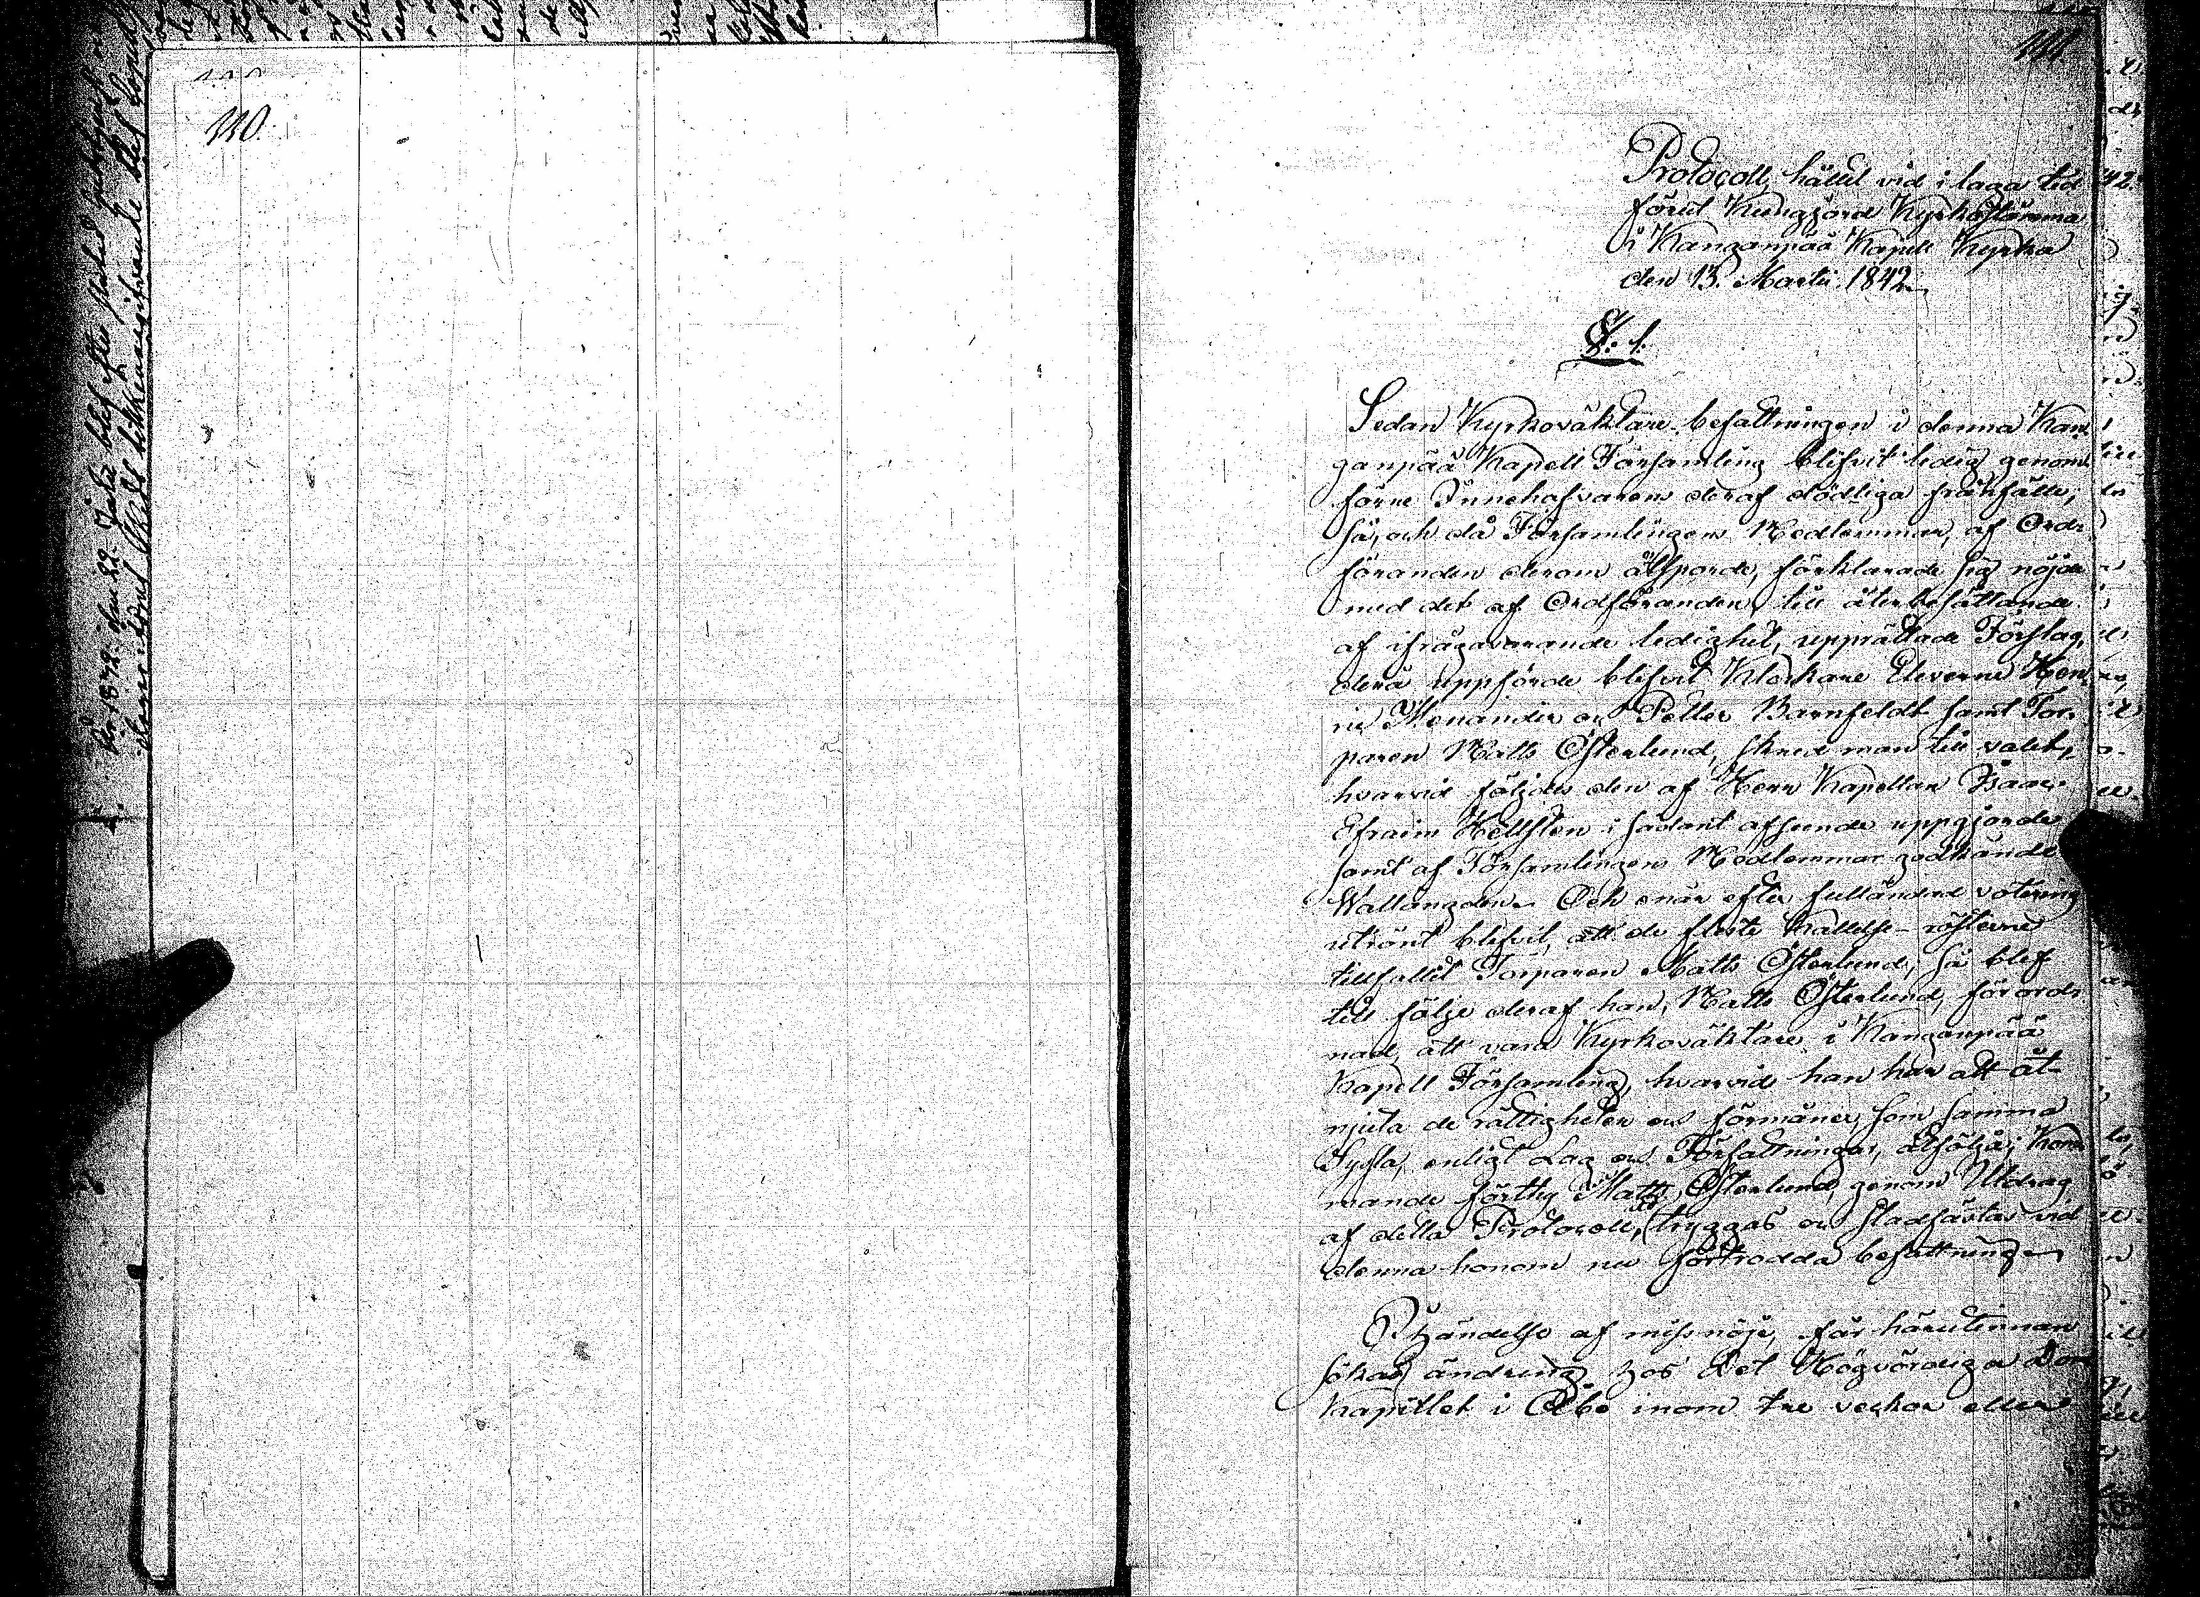 110.
111.
Protocoll, hållit vid i laga tid
förut Kungjord Kyrkostämma
i Kanganpää Kapell Kyrka
den 13. Martii 1842.
§: 1.
Sedan Kyrkoväktare befattningen i denna Kan-
ganpää Kapell Församling blifvit ledig genom
förne Innehafvarens deraf dödliga frånfälle;
så, och då Församlingens Medlemmar, af Ord-
föranden derom åtsporde, förklarade sig nöjde
med det af Ordföranden, till återbesättande
af ifrågavarande ledighet, upprättade Förslag,
derå uppförde blifvit Klockare Eleverne Hen-
ric Menander och Petter Barnfeldt samt Tor-
paren Matts Österlund, skred man till valet,
hvarvid följdes den af Herr Kapellan Isaac
Efraim Hellsten i sådant afseende uppgjorde
samt af Församlingens Medlemmar godkände
Wallängden. Och enär efter fulländad votering
utrönt blifvit, att de fleste Kallelse-rösterne
tillfallit Torparen Matts Österlund, så blef
till följe deraf han, Matts Österlund, förord-
nad, att vara Kyrkoväktare i Kanganpää
Kapell Församling, hvarvid han har att åt-
njuta de rättigheter och förmåner, som samma
Syssla, enligt Lag och Författningar, åtfölja; Kom-
mande förthy Matts Österlund, genom Utdrag
af detta Protocoll, tryggas och stadfästas vid
denna honom nu förtrodda befattning.
I händelse af missnöje, får härutinnan
sökas ändring hos Det Högvördiga Dom
Kapitlet i Åbo inom tre veckor eller
År 1842. den 22.